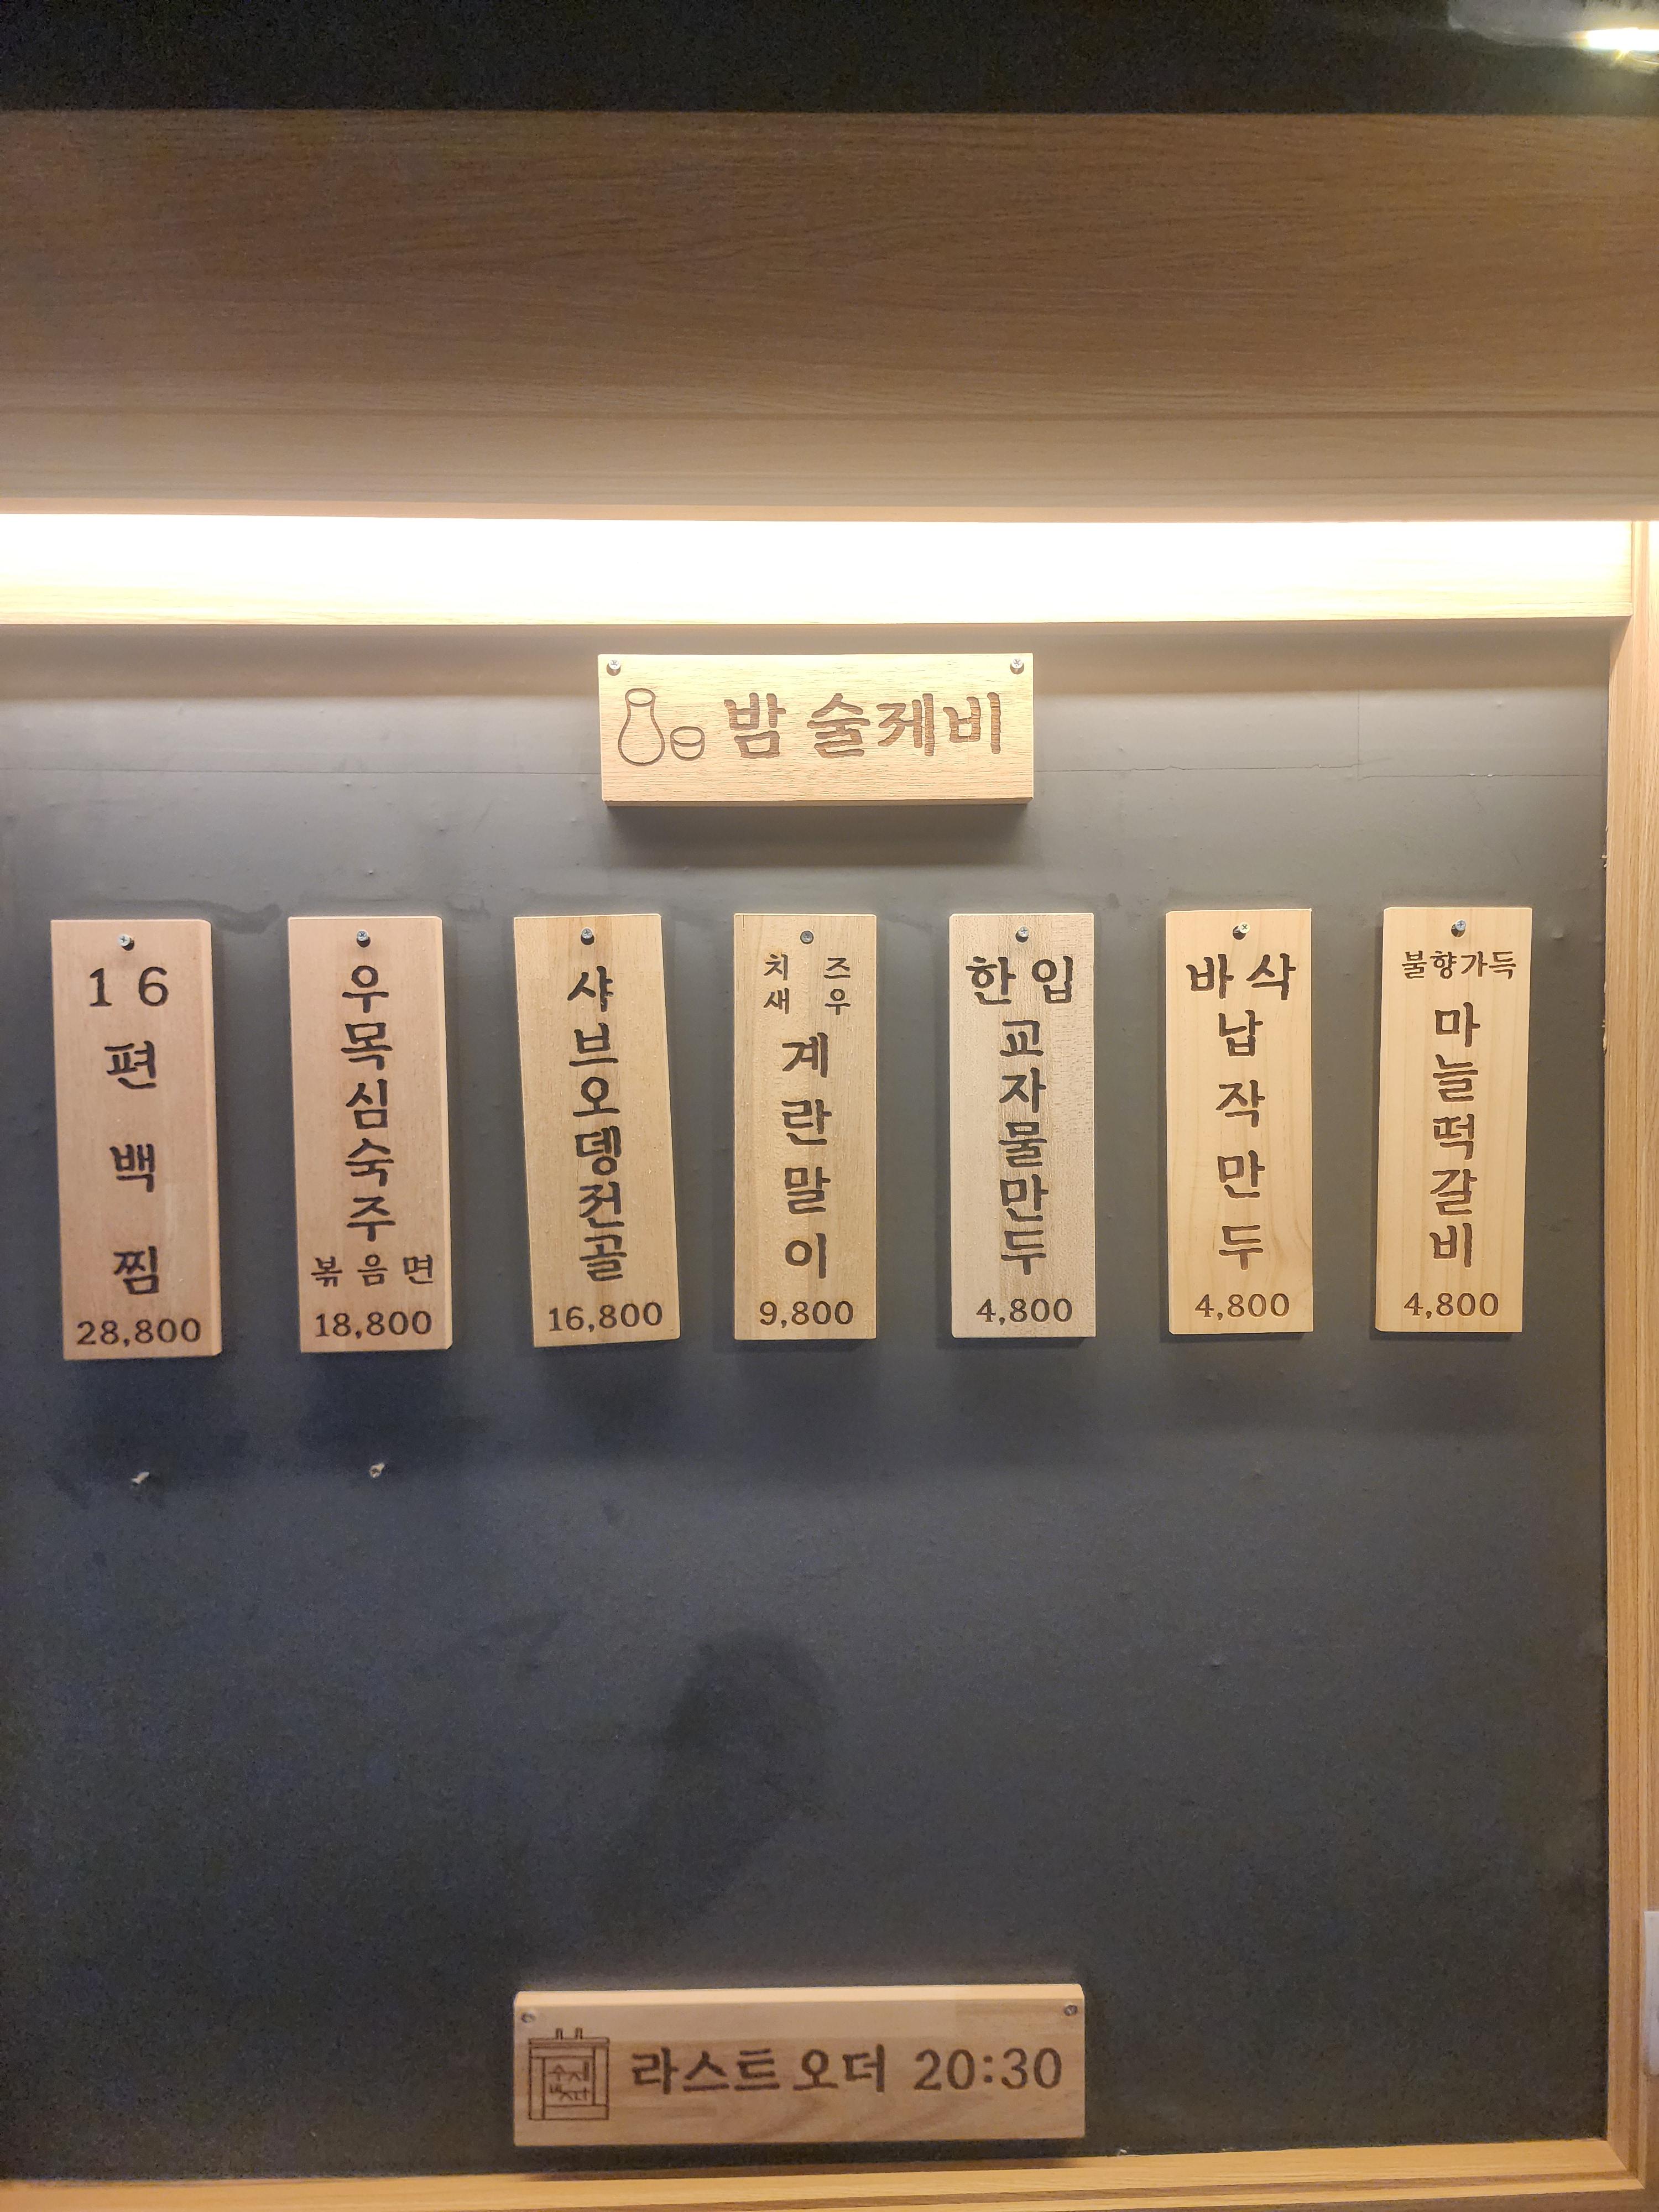 밤 술제비
16
편
백
찜
28,800
우
목
심
숙
주
볶음면
18,800
샤
브
오
뎅
전
골
16,800
치즈
새우
계
란
말
이
9,800
한입
교
자
물
만
두
4,800
바삭
납
작
만
두
4,800
불향가득
마
늘
떡
갈
비
4,800
라스트 오더 20:30